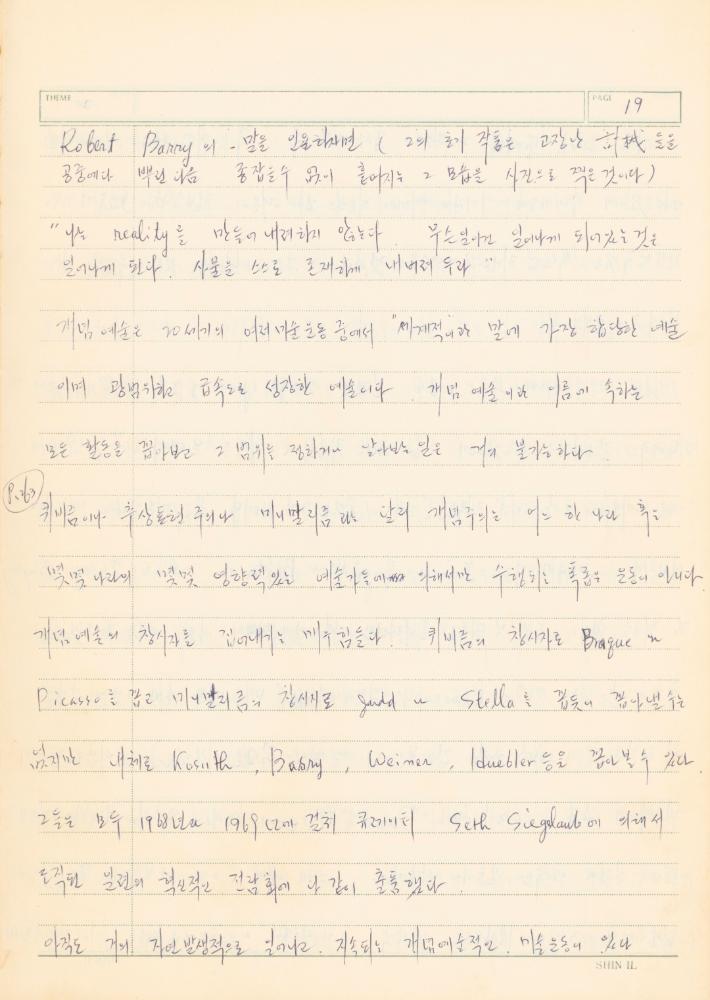 THEME
PAGE 19
Robert Barry의 말을 인용하자면 ( 그의 초기 작품은 고장난 計械들을
공중에다 뿌린 다음 종잡을수 없이 흩어지는 그 모습을 사진으로 찍은것이다)
"나는 reality를 만들어 내려하지 않는다. 무슨일이건 일어나게 되어있는 것은
일어나게 된다. 사물을 스스로 존재하게 내버려 두라"
개념 예술은 20세기의 여러 미술운동 중에서 "세계적이란 말에 가장 합당한 예술
이며 광범위하고 급속도로 성장한 예술이다. 개념 예술이란 이름에 속하는
모든 활동을 꼽아보고 그 범위를 정하거나 알아보는 일은 거의 불가능하다
P.263
퀴비즘이나 추상표현주의나 미니말리즘과는 달리 개념주의는 어느 한 나라 혹은
몇몇나라의 몇몇 영향력있는 예술가들에 의해서만 수행되는 폭좁은 운동이 아니다.
개념예술의 창시자를 집어내기는 매우 힘들다. 퀴비즘의 창시자로 Braque나
Picasso를 꼽고 미니말리즘의 창시자로 Judd나 Stella를 꼽듯이 꼽아낼 수는
없지만 대체로 Kosuth, Barry, Weiner, Huebler등을 꼽아볼 수 있다.
그들은 모두 1968년과 1969년에 걸쳐 큐레이터 Seth Siegelaub에 의해서
조직된 일련의 혁신적인 전람회에 다 같이 출품했다.
아직도 거의 자연발생적으로 일어나고 지속되는 개념예술적인 미술운동이 있다
SHIN IL